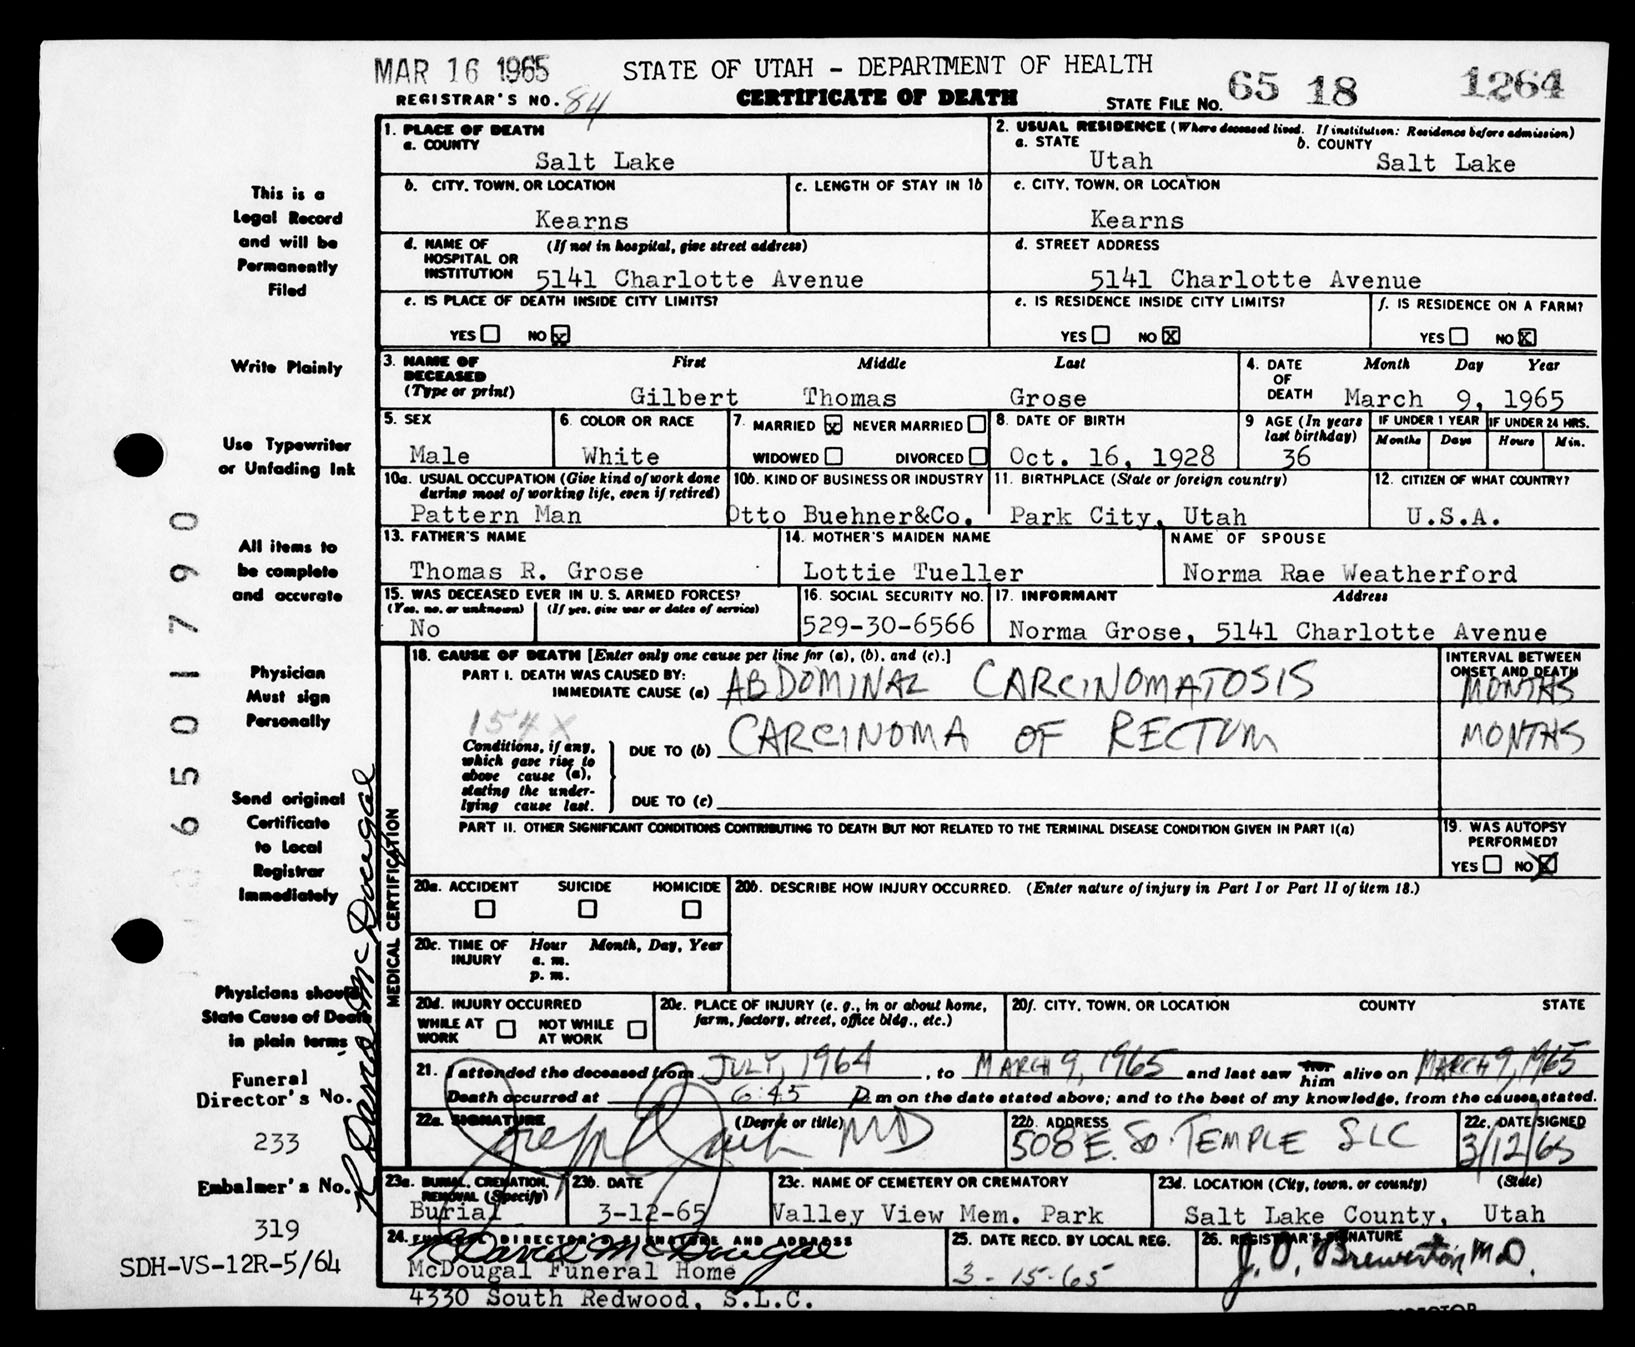 MAR 16 1965
STATE OF UTAH - DEPARTMENT OF HEALTH
65 18 1264
REGISTRAR'S NO. 84
CERTIFICATE OF DEATH
STATE FILE NO.
This is a
Legal Record
and will be
Permanently
Filed
Write Plainly
Use Typewriter
or Unfading Ink
All items to
be complete
and accurate
Physician
Must sign
Personally
Send original
Certificate
to Local
Registrar
Immediately
Physicians should
State Cause of Death
in plain terms
Funeral
Director's No.
233
Embalmer's No.
319
SDH-VS-12R-5/64
6501790
R David McDougal
1. PLACE OF DEATH
a. COUNTY
Salt Lake
2. USUAL RESIDENCE (Where deceased lived. If institution: Residence before admission)
a. STATE
Utah
b. COUNTY
Salt Lake
b. CITY, TOWN, OR LOCATION
Kearns
c. LENGTH OF STAY IN 1b
c. CITY, TOWN, OR LOCATION
Kearns
d. NAME OF (If not in hospital, give street address)
HOSPITAL OR
INSTITUTION 5141 Charlotte Avenue
d. STREET ADDRESS
5141 Charlotte Avenue
e. IS PLACE OF DEATH INSIDE CITY LIMITS?
YES NO X
e. IS RESIDENCE INSIDE CITY LIMITS?
YES NO X
f. IS RESIDENCE ON A FARM?
YES NO X
3. NAME OF First Middle Last
DECEASED
(Type or print) Gilbert Thomas Grose
4. DATE Month Day Year
OF
DEATH March 9, 1965
5. SEX
Male
6. COLOR OR RACE
White
7. MARRIED X NEVER MARRIED
WIDOWED DIVORCED
8. DATE OF BIRTH
Oct. 16, 1928
9 AGE (In years
last birthday)
36
IF UNDER 1 YEAR
Months Days
IF UNDER 24 HRS.
Hours Min.
10a. USUAL OCCUPATION (Give kind of work done
during most of working life, even if retired)
Pattern Man
10b. KIND OF BUSINESS OR INDUSTRY
Otto Buehner&Co.
11. BIRTHPLACE (State or foreign country)
Park City, Utah
12. CITIZEN OF WHAT COUNTRY?
U.S.A.
13. FATHER'S NAME
Thomas R. Grose
14. MOTHER'S MAIDEN NAME
Lottie Tueller
NAME OF SPOUSE
Norma Rae Weatherford
15. WAS DECEASED EVER IN U.S. ARMED FORCES?
(Yes, no, or unknown) (If yes, give war or dates of service)
No
16. SOCIAL SECURITY NO.
529-30-6566
17. INFORMANT Address
Norma Grose, 5141 Charlotte Avenue
MEDICAL CERTIFICATION
18. CAUSE OF DEATH [Enter only one cause per line for (a), (b), and (c).]
INTERVAL BETWEEN
ONSET AND DEATH
PART I. DEATH WAS CAUSED BY:
IMMEDIATE CAUSE (a) ABDOMINAL CARCINOMATOSIS MONTHS
154X
Conditions, if any,
which gave rise to
above cause (a),
stating the under-
lying cause last.
DUE TO (b) CARCINOMA OF RECTUM MONTHS
DUE TO (c)
PART II. OTHER SIGNIFICANT CONDITIONS CONTRIBUTING TO DEATH BUT NOT RELATED TO THE TERMINAL DISEASE CONDITION GIVEN IN PART I(a)
19. WAS AUTOPSY
PERFORMED?
YES NO X
20a. ACCIDENT SUICIDE HOMICIDE
20b. DESCRIBE HOW INJURY OCCURRED. (Enter nature of injury in Part I or Part II of item 18.)
20c. TIME OF Hour Month, Day, Year
INJURY a. m.
p. m.
20d. INJURY OCCURRED
WHILE AT NOT WHILE
WORK AT WORK
20e. PLACE OF INJURY (e. g., in or about home,
farm, factory, street, office bldg., etc.)
20f. CITY, TOWN, OR LOCATION COUNTY STATE
21. I attended the deceased from JULY, 1964, to MARCH 9, 1965 and last saw her him alive on MARCH 9, 1965
Death occurred at 6:45 P. m on the date stated above; and to the best of my knowledge, from the causes stated.
22a. SIGNATURE (Degree or title) MD
22b. ADDRESS
508 E. So. TEMPLE SLC
22c. DATE SIGNED
3/12/65
23a. BURIAL, CREMATION,
REMOVAL (Specify)
Burial
23b. DATE
3-12-65
23c. NAME OF CEMETERY OR CREMATORY
Valley View Mem. Park
23d. LOCATION (City, town, or county) (State)
Salt Lake County, Utah
24. FUNERAL DIRECTOR'S SIGNATURE AND ADDRESS
R David McDougal
McDougal Funeral Home
4330 South Redwood, S.L.C.
25. DATE RECD. BY LOCAL REG.
3-15-65
26. REGISTRAR'S SIGNATURE
J. O. Brewerton, M.D.
DIRECTOR